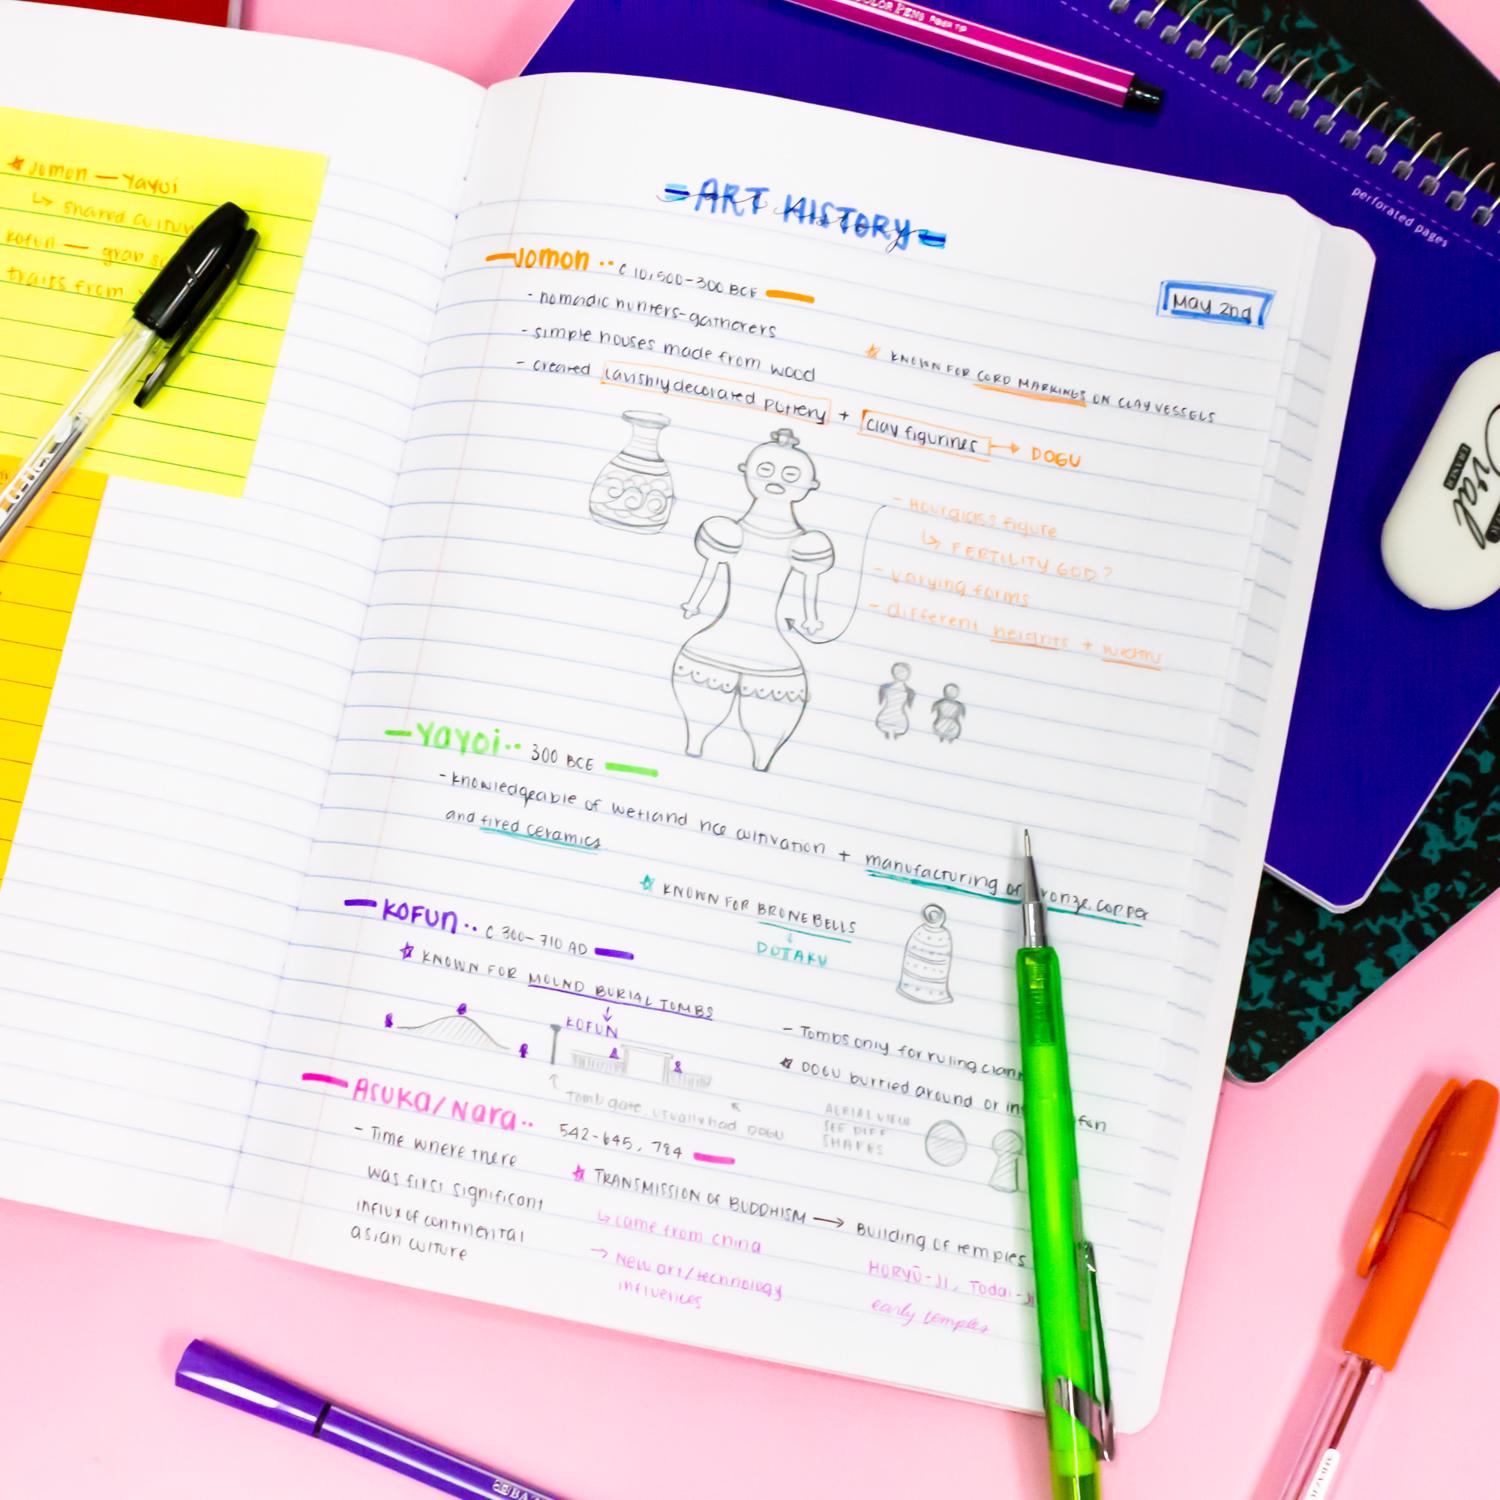 ★ Jomon — Yayoi
↳ shared
Kofun —
traits from
COLOR PENS
perforated pages
ART HISTORY
May 2nd
Jomon ·· c 10,500-300 BCE
- nomadic hunters-gatherers
- simple houses made from wood
- created lavishly decorated pottery + clay figurines → DOGU
★ KNOWN FOR CORD MARKINGS ON CLAY VESSELS
- Hourglass? figure
↳ FERTILITY GOD?
- varying forms
- different heights + widths
Yayoi ·· 300 BCE
- knowledgeable of wetland rice cultivation + manufacturing of bronze, copper
and fired ceramics
★ KNOWN FOR BRONE BELLS
↓
DOTAKU
KOFUN ·· c 300-710 AD
★ KNOWN FOR MOUND BURIAL TOMBS
↓
KOFUN
- Tombs only for ruling
★ DOGU burried around or
Tomb gate, usually had DOGU
AERIAL VIEW
SEE DIFF
SHAPES
ASUKA/NARA ··
542-645, 784
- Time where there
was first significant
influx of continental
asian culture
★ TRANSMISSION OF BUDDHISM → Building of temples
↳ came from china
→ New art/technology
influences
HORYŪ-JI, Todai-Ji
early temples